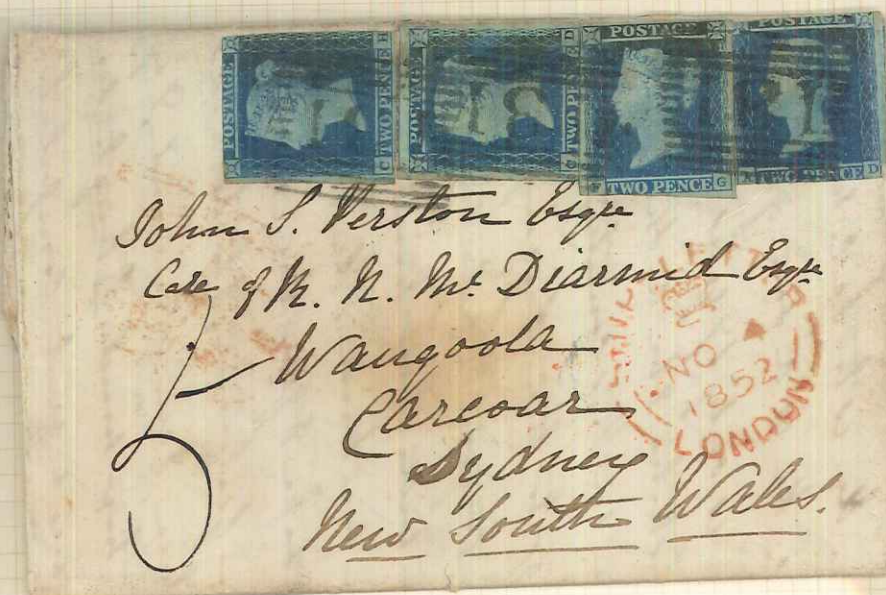 POSTAGE TWO PENCE
POSTAGE TWO PENCE
POSTAGE TWO PENCE
POSTAGE TWO PENCE
John S. Perston Esqre
Care of R. N. Mc Diarmid Esqre
Waugoola
Carcoar
Sydney
New South Wales.
5
SHIP LETTER
NO
1852
LONDON